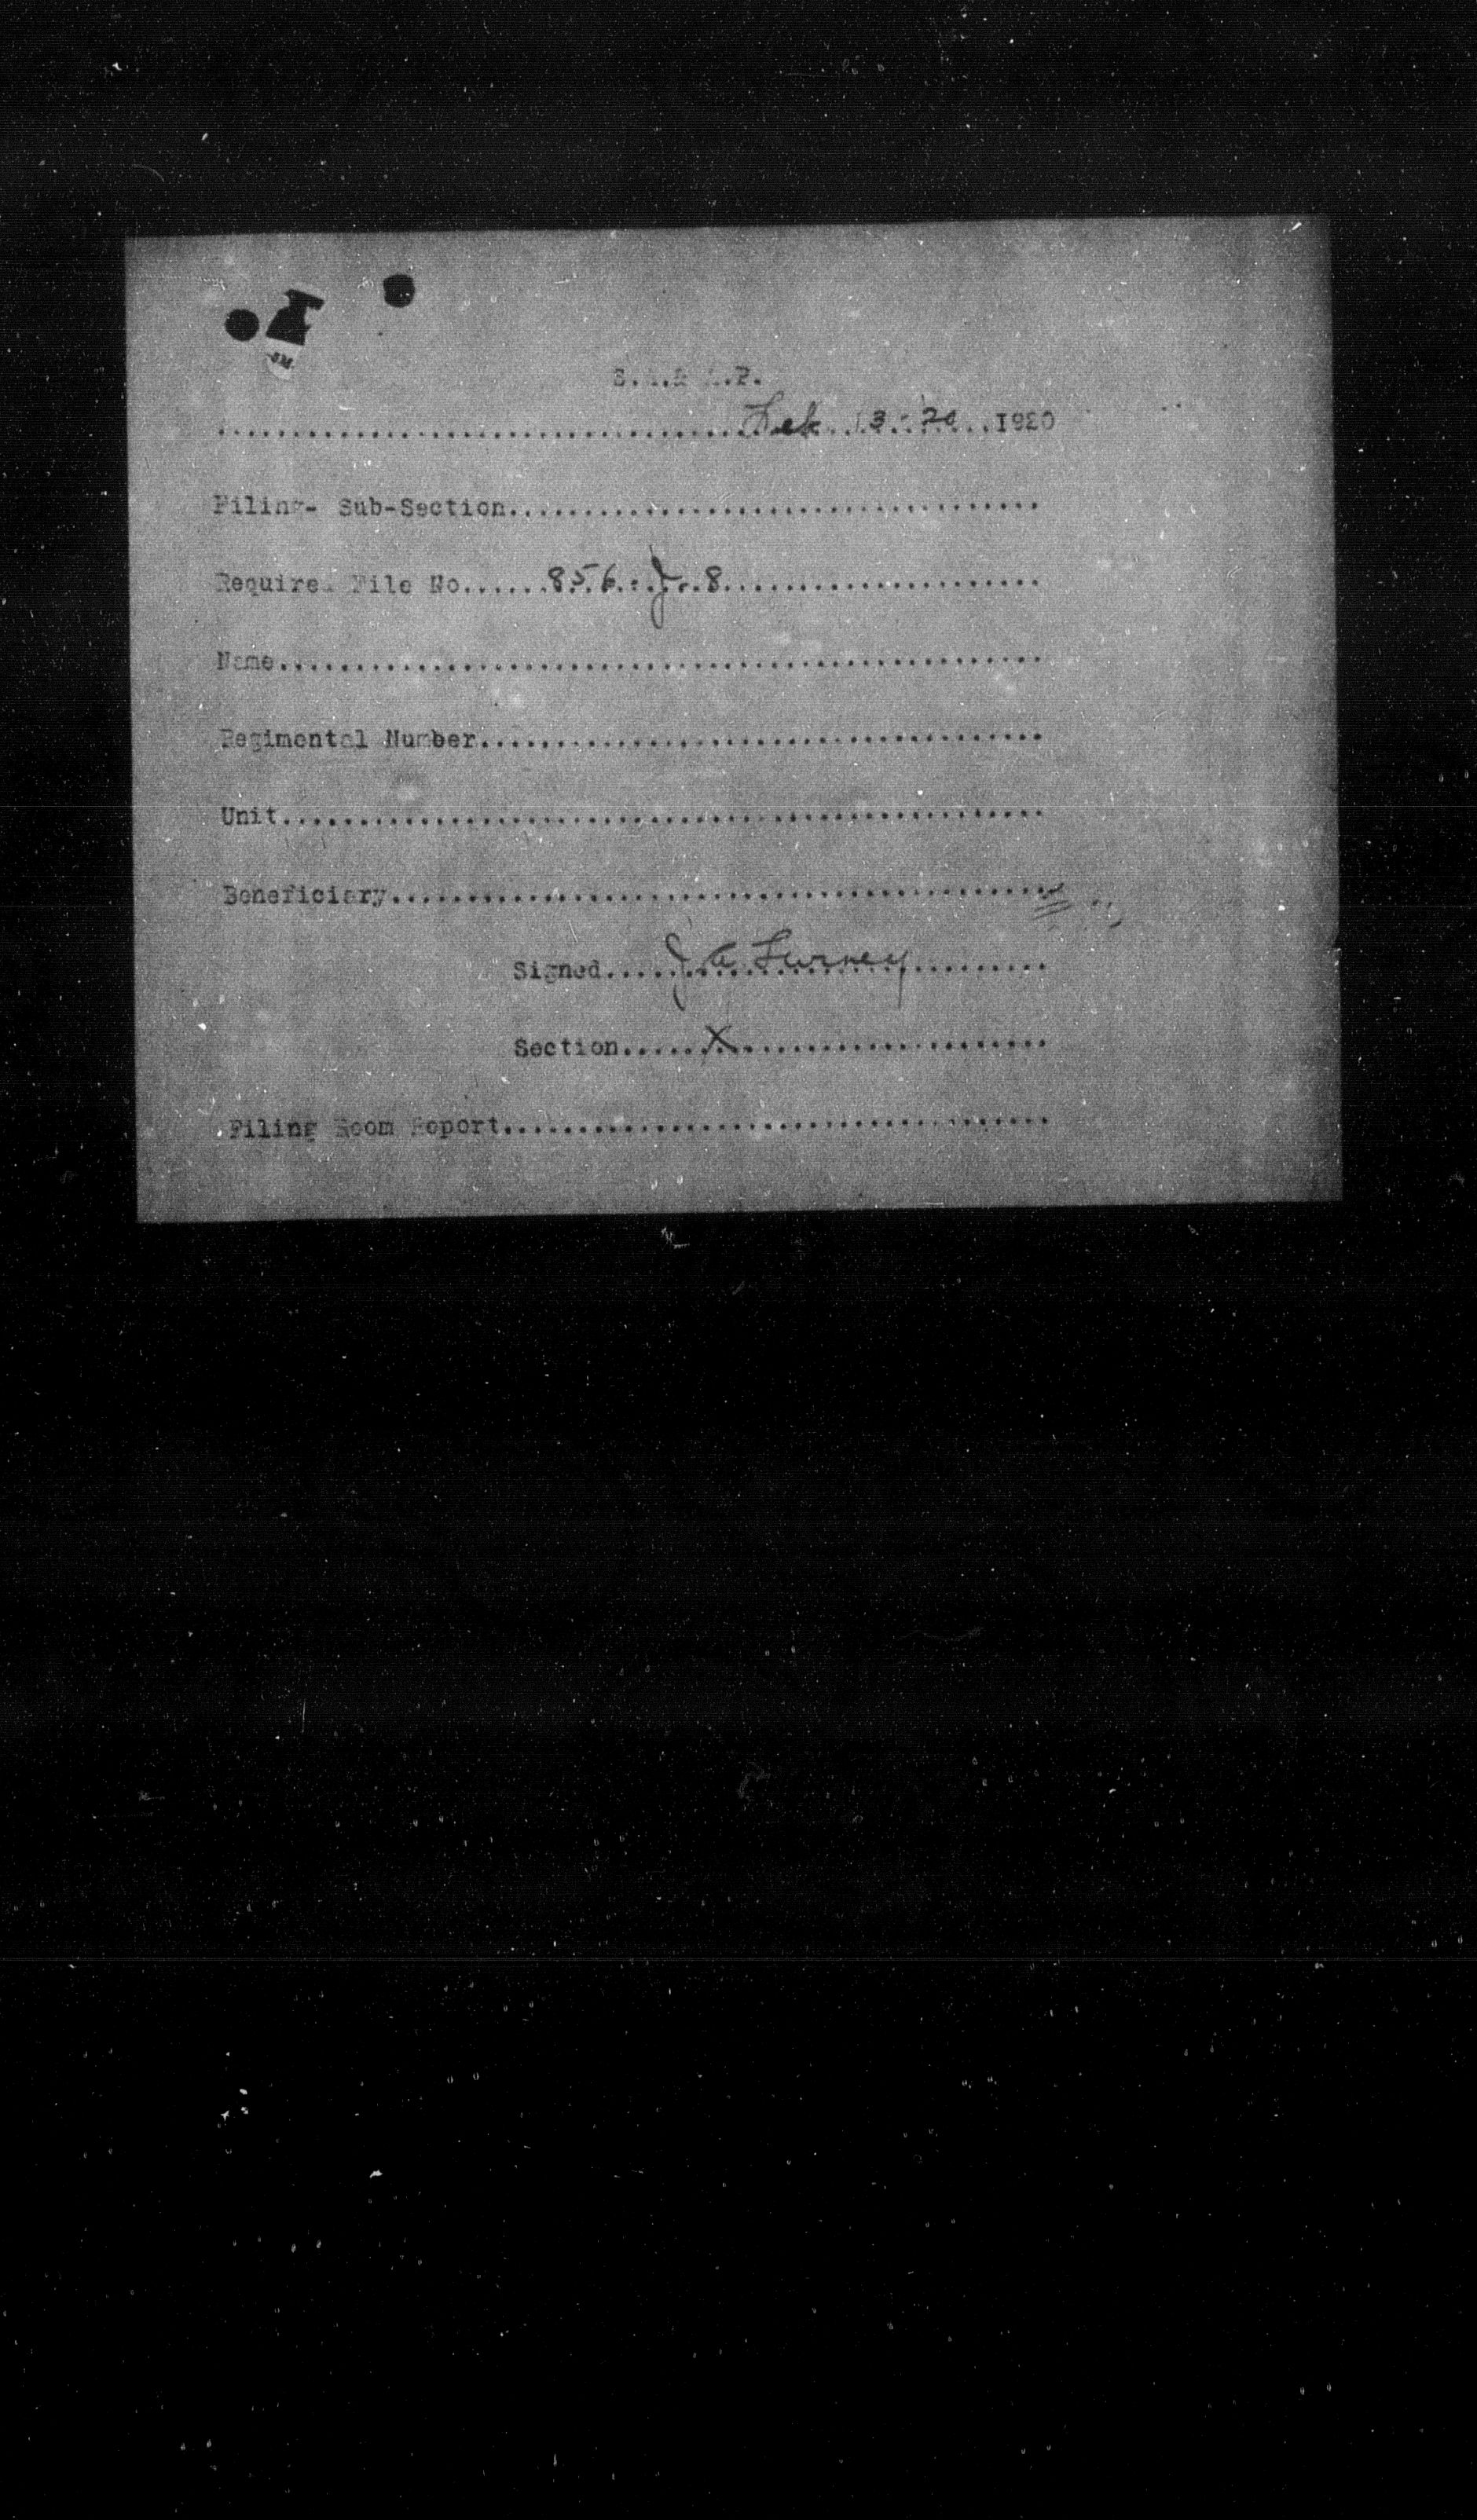 S.A.& A.P.
........Feb. 13. 20...1920
Filing- Sub-Section........
Require. File No......856. J. 8........
Name........
Regimental Number........
Unit........
Beneficiary........
Signed.....J A Turney........
Section......X........
Filing Room Report........